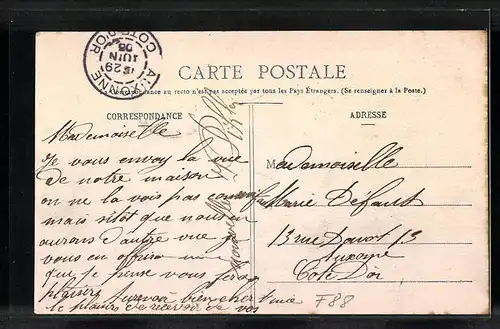 AUXONNE
COTE-D'OR
29
JUIN
05
CARTE POSTALE
La Correspondance au recto n'est pas acceptée par tous les Pays Étrangers. (Se renseigner à la Poste.)
CORRESPONDANCE
ADRESSE
Mademoiselle
Je vous envoy la vue
de notre maison
on ne la vois pas
mais sitôt que nous en
aurons d'autre vue je
vous en offrirai
que je pense vous fera
plaisirs
le plaisirs de recevoir de vos
Mademoiselle
Marie Défaut
13 rue Davot 13
Auxonne
Côte D'or
F88